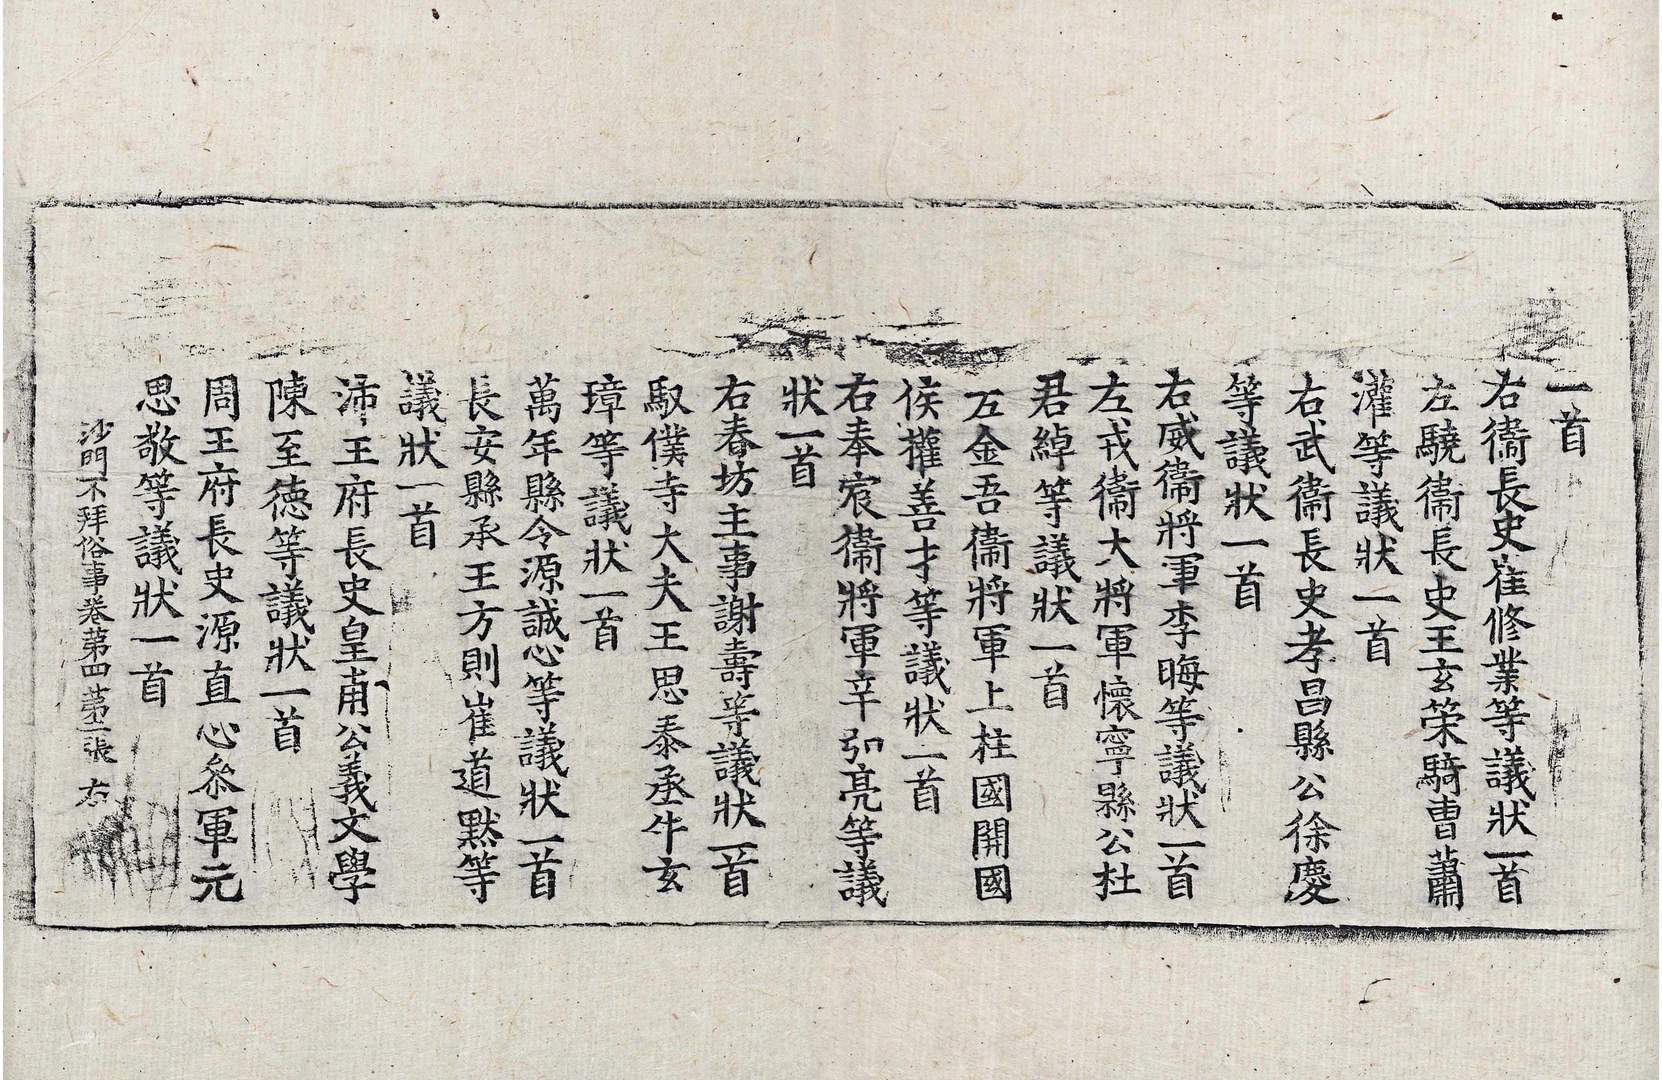 一首
右衞長史崔修業等議狀一首
左驍衞長史王玄策騎曹蕭
灌等議狀一首
右武衞長史孝昌縣公徐慶
等議狀一首
右威衞將軍李晦等議狀一首
左戎衞大將軍懷寧縣公杜
君綽等議狀一首
左金吾衞將軍上柱國開國
侯權善才等議狀一首
右奉宸衞將軍辛弘亮等議
狀一首
右春坊主事謝壽等議狀一首
馭僕寺大夫王思泰丞牛玄
璋等議狀一首
萬年縣令源誠心等議狀一首
長安縣丞王方則崔道黙等
議狀一首
沛王府長史皇甫公義文學
陳至徳等議狀一首
周王府長史源直心叅軍元
思敬等議狀一首
沙門不拜俗事卷第四 第二張 右